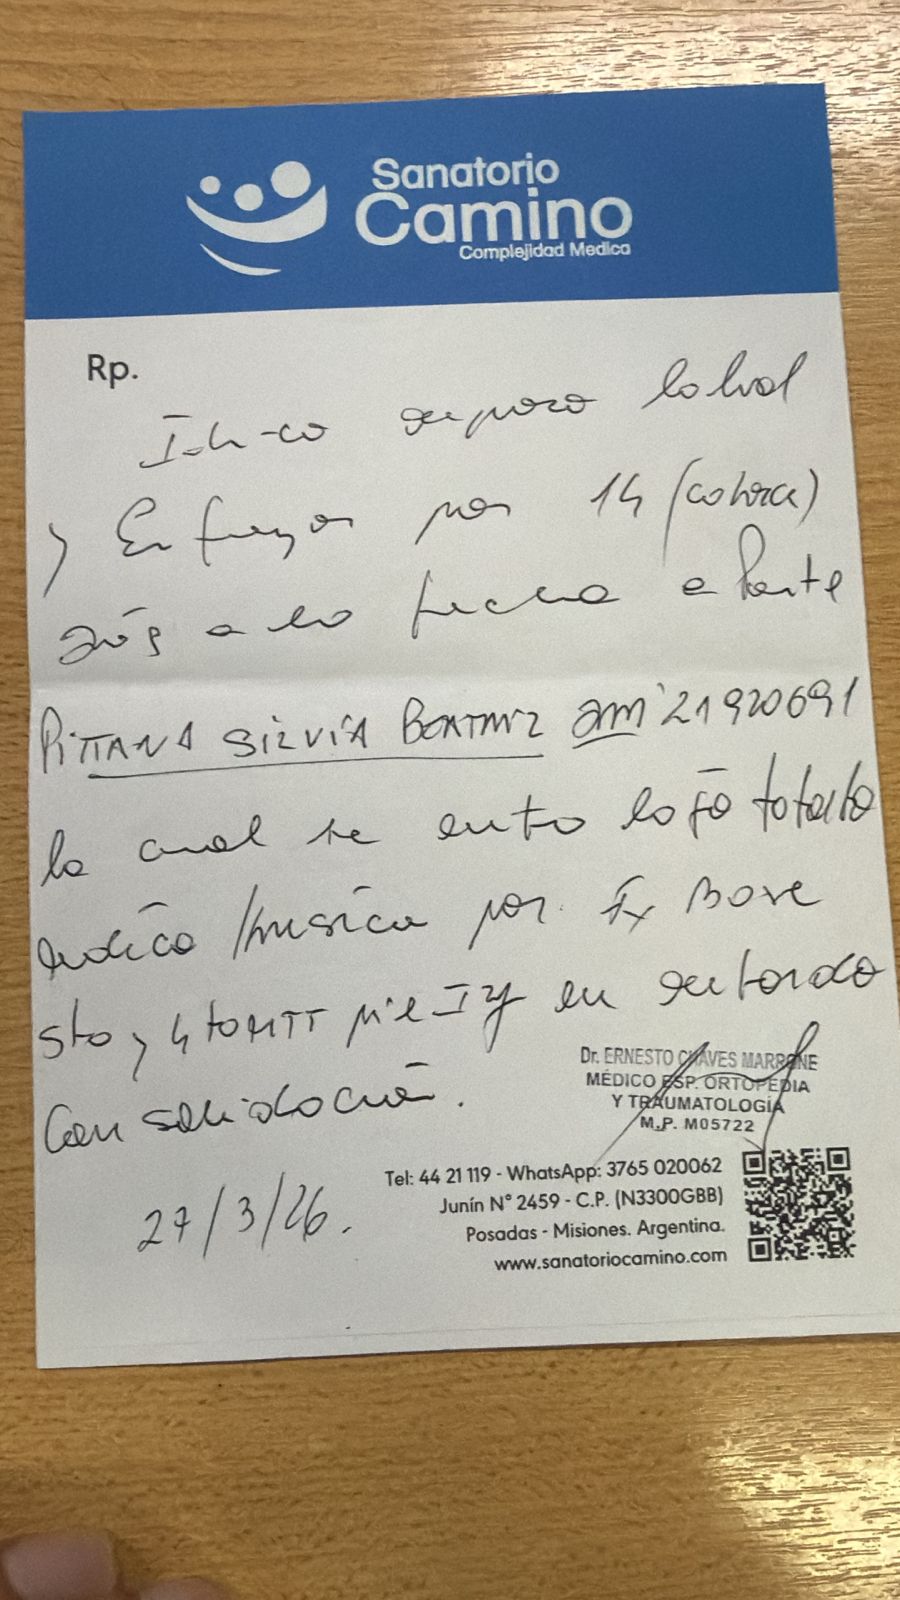 Sanatorio
Camino
Complejidad Medica
Rp.
Indico reposo laboral
y Esfuerzos por 14 (catorce)
días a la fecha a Paciente
PITTANA SILVIA BEATRIZ DNI 21920691
la cual se
médico por Fx Base
5to y 4to MTT pie Izq en retardo
Consolidación.
Dr. ERNESTO CHAVES MARRONE
MÉDICO ESP. ORTOPEDIA
Y TRAUMATOLOGÍA
M.P. M05722
27/3/26.
Tel: 44 21 119 - WhatsApp: 3765 020062
Junín N° 2459 - C.P. (N3300GBB)
Posadas - Misiones. Argentina.
www.sanatoriocamino.com